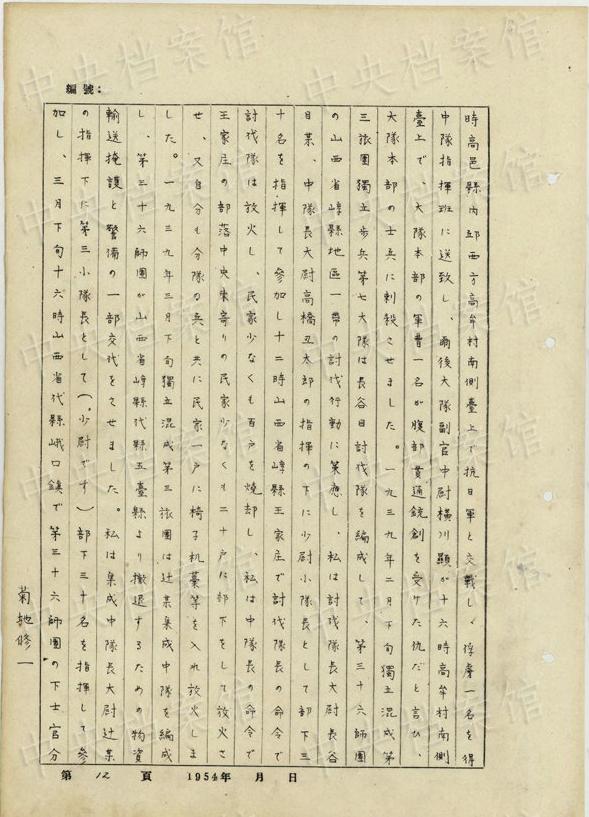 編號：
時高邑縣內邱西方高牟村南側臺上で抗日軍と交戰し、俘虜一名を得
中隊指揮班に送致し、爾後大隊副官中尉橫川顯が十六時高牟村南側
臺上で、大隊本部の軍曹一名が腹部貫通銃創を受けた仇だと言ひ、
大隊本部の士兵に刺殺させました。一九三九年二月下旬獨立混成第
三旅團獨立步兵第七大隊は長谷目討伐隊を編成して、第三十六師團
の山西省崞縣地區一帶の討伐行動に策應し、私は討伐隊長大尉長谷
目某、中隊長大尉高橋丑太郎の指揮の下に少尉小隊長として部下三
十名を指揮して參加し十二時山西省崞縣王家庄で討伐隊長の命令で
討伐隊は放火し、民家少なくも百戶を燒却し、私は中隊長の命令で
王家庄の部落中央東寄りの民家少なくも二十戶に部下をして放火さ
せ、又自分も分隊の兵と共に民家一戶に椅子机蓆等を入れ放火しま
した。一九三九年三月下旬獨立混成第三旅團は辻某集成中隊を編成
し、第三十六師團が山西省崞縣代縣五臺縣より撤退するための物資
輸送掩護と警備の一部交代をさせました。私は集成中隊長大尉辻某
の指揮下に第三小隊長として（少尉です）部下三十名を指揮して參
加し、三月下旬十六時山西省代縣峨口鎮で第三十六師團の下士官分
菊地修一
第 12 頁 1954年 月 日
中央档案馆